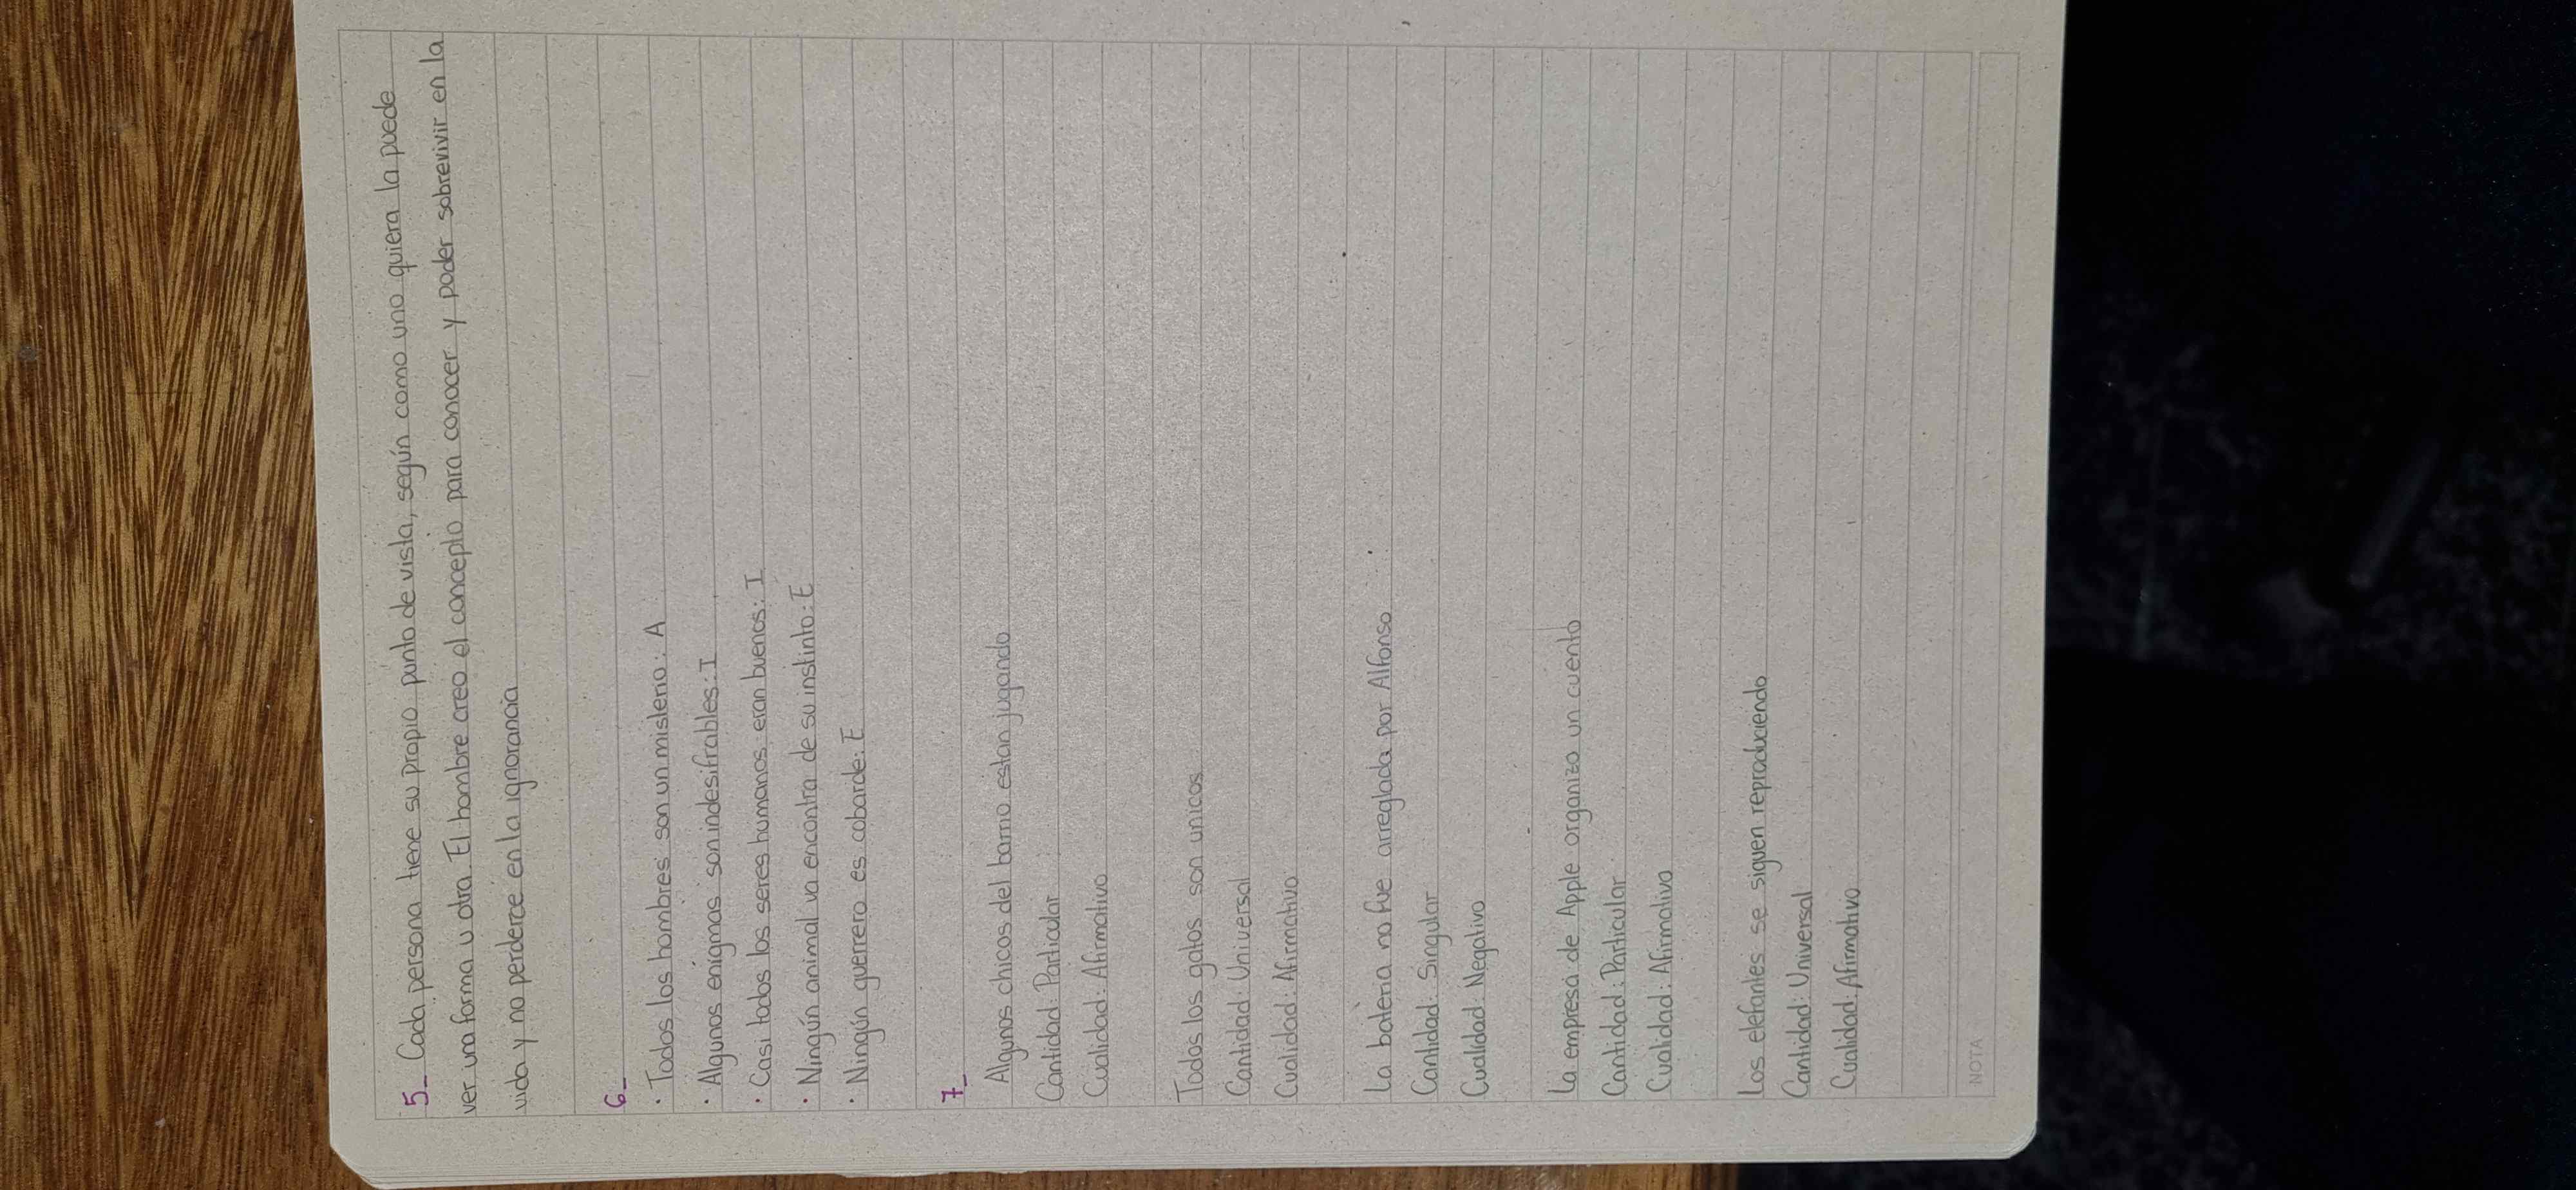 5_ Cada persona tiene su propio punto de vista, según como uno quiera la puede
ver una forma u otra. El hombre creo el concepto para conocer y poder sobrevivir en la
vida y no perderce en la ignorancia
6_
· Todos los hombres son un misterio: A
· Algunos enigmas son indesifrables: I
· Casi todos los seres humanos eran buenos: I
· Ningún animal va encontra de su instinto: E
· Ningún guerrero es cobarde: E
7_
Algunos chicos del barrio estan jugando
Cantidad: Particular
Cualidad: Afirmativo
Todos los gatos son unicos
Cantidad: Universal
Cualidad: Afirmativo
La batería no fue arreglada por Alfonso
Cantidad: Singular
Cualidad: Negativo
La empresa de Apple organizo un cuento
Cantidad: Particular
Cualidad: Afirmativo
Los elefantes se siguen reproduciendo
Cantidad: Universal
Cualidad: Afirmativo
NOTA